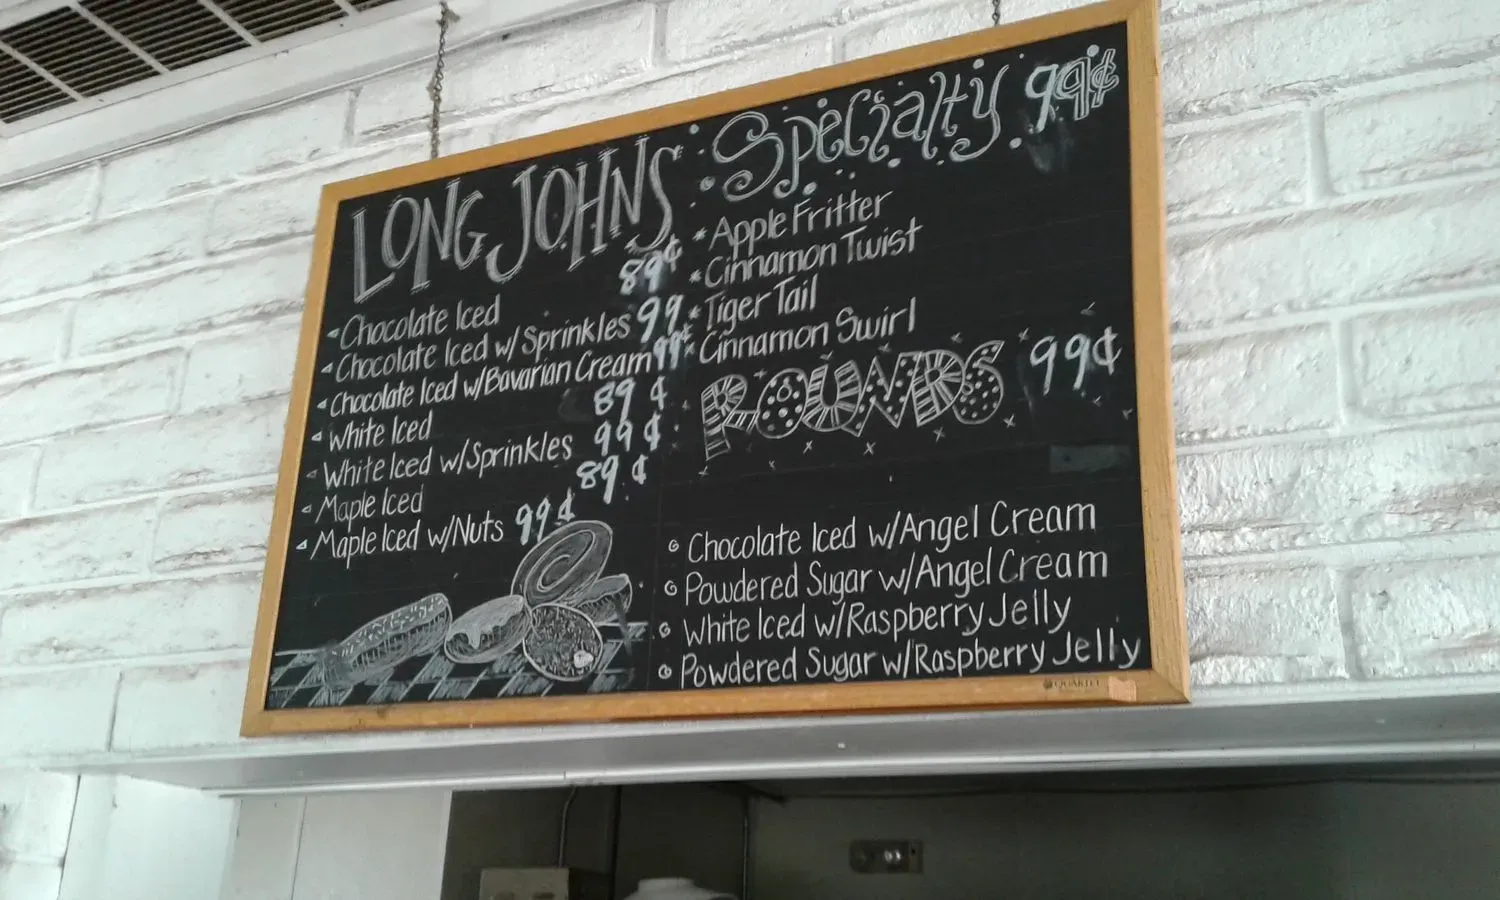 LONG JOHNS
Chocolate Iced 89¢
Chocolate Iced w/Sprinkles 99
Chocolate Iced w/Bavarian Cream 99¢
White Iced 89¢
White Iced w/Sprinkles 99¢
Maple Iced 89¢
Maple Iced w/Nuts 99¢
Specialty 99¢
* Apple Fritter
* Cinnamon Twist
* Tiger Tail
* Cinnamon Swirl
ROUNDS 99¢
Chocolate Iced w/Angel Cream
Powdered Sugar w/Angel Cream
White Iced w/Raspberry Jelly
Powdered Sugar w/Raspberry Jelly
QUARTET